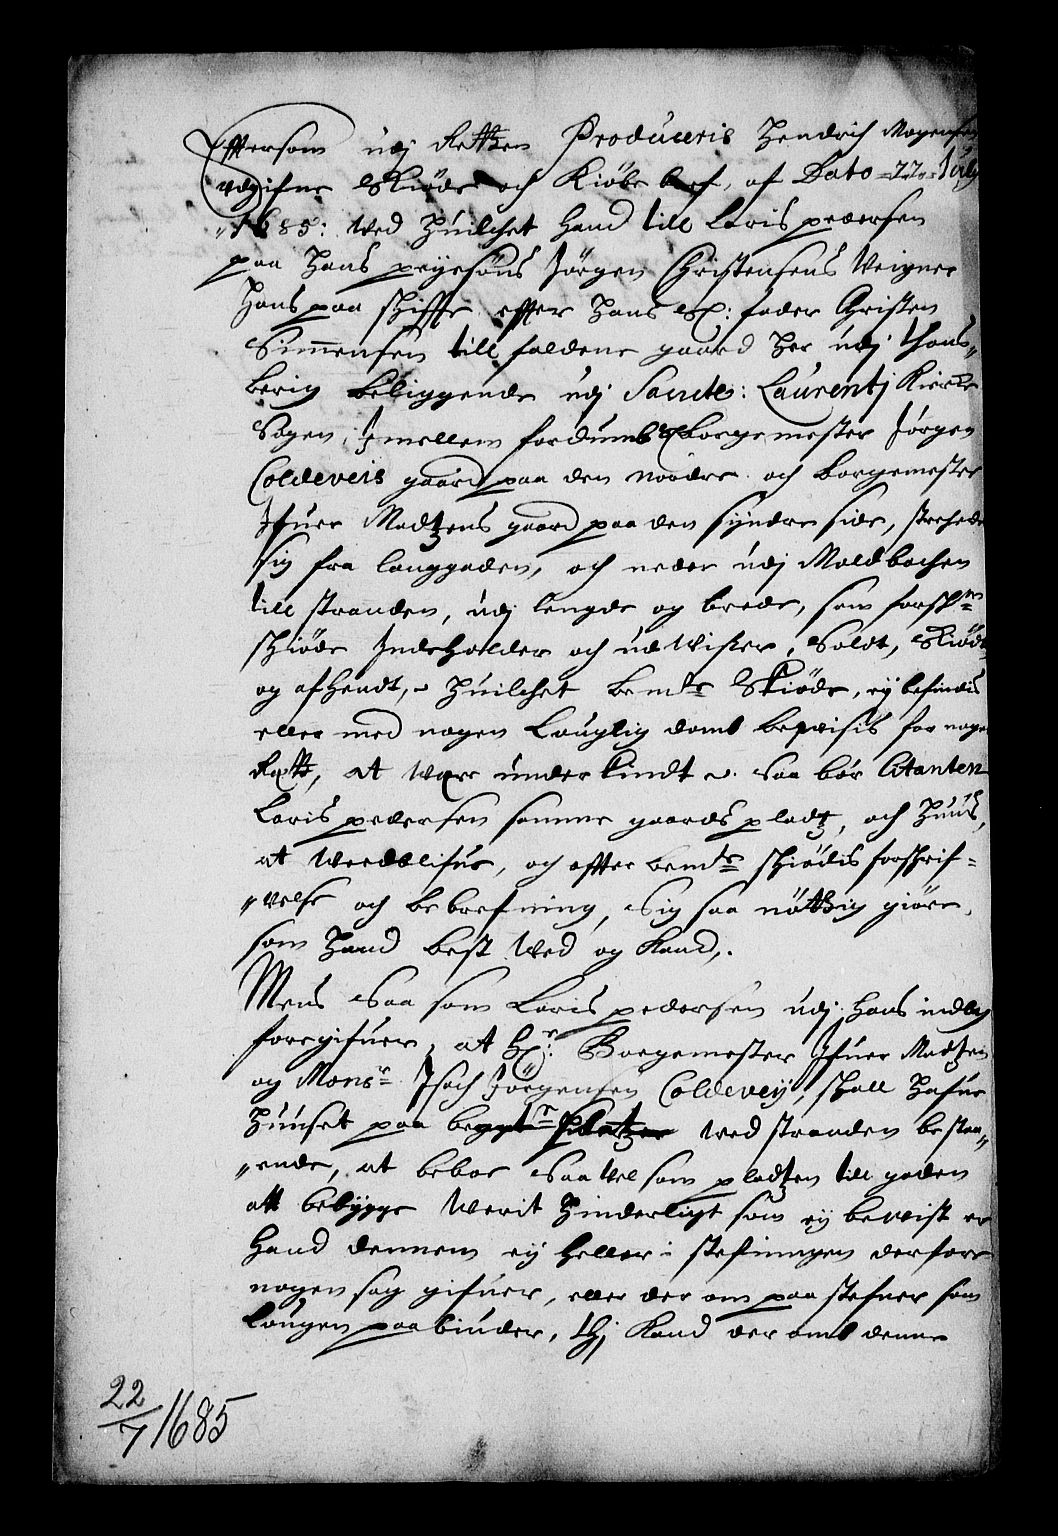 Effttersom udj Retten Produceris Hendrich Mogensen
udgifne Skiøde och Kiøbe bref, af Dato 22. Julij
1685: Wed Huilchet Hand till Loris pedersen
paa Hans prinsens Jørgen Christensens Veigner
Hans paa schifte effter Hans Sl: fader Christen
Simmensen till faldene gaard Her udj Thons¬
berig beliggende udj Sanctæ: Laurentj Kierche
Sogen, Jmellem fordumb Borgemester Jørgen
Coldeveis gaard paa den nordre och borgemester
Jfuer Madtzens gaard paa den syndre side, strechede
sig fra langgaden, och neder udj Moldbachen
till stranden, udj lengde og brede, som forschne
schiøde Jndeholder och udWiser, Soldt, Skiødt
og afhendt, Huilchet bemte Skiøde, ey befindis
eller med nogen Louglig domb bevisis for nogen
Rett, at were underkindt. saa bør Citanten
Loris pedersen samme gaards pladtz, och Huus,
at Werdblifue, og effter bemte schiødis forschrif¬
velse och bebrefning, Sig saa nøttig giøre,
som Hand best Wed og Kand,.
Mens Saa som Loris pedersen udj Hans indleg
foregifuer, at Hr: Borgemester Jfuer Madtzen
og Monsr Jsach Jørgensen Coldeveij, skall Hafue
Huuset paa Wed stranden bestaa¬
ende, at beboe Saa Vel som pladtzen till gaden
att bebygge Werit Hinderligt som ey bevist er
Hand dennem ey heller i stefningen derfore
nogen sag gifuer, eller der om paa stefner som
Lougen paabiuder, thj Kand der omb denne
22/7 1685